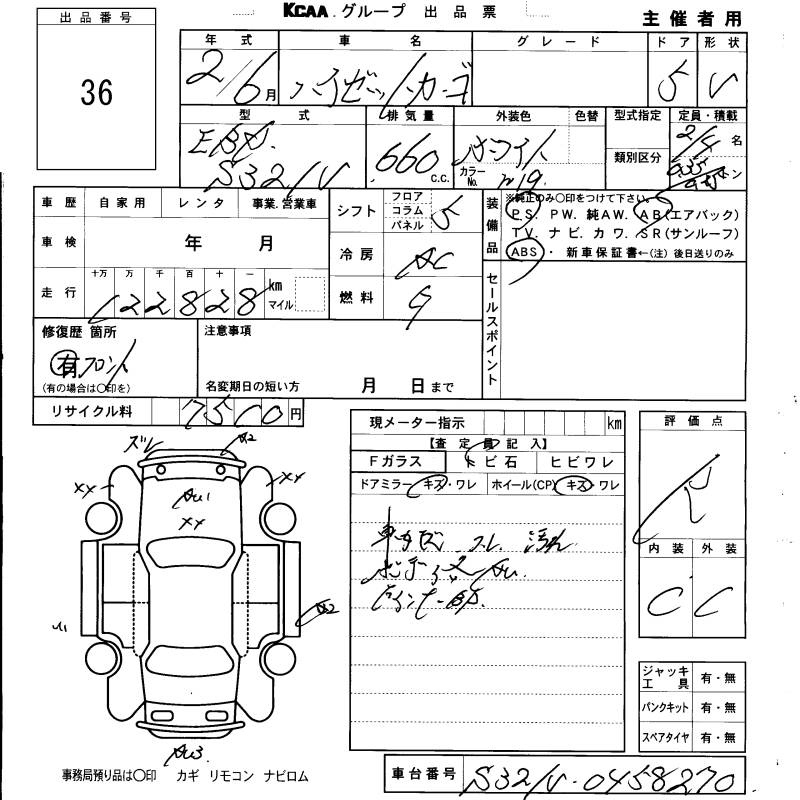 KCAA.グループ 出品票
主催者用
出品番号
36
年式 車名 グレード ドア 形状
2/6月 ハイゼットカーゴ 5 V
型式 排気量 外装色 色替 型式指定 定員・積載
EBD. 660 c.c. ホワイト 2/4 名
S321V カラーNo. W19 類別区分 トン
車歴 自家用 レンタ 事業.営業車
車検 年 月
走行 十万 万 千 百 十 一
122828 km マイル
シフト フロア コラム パネル 5
冷房 AC
燃料 G
装備品 ※純正のみ○印をつけて下さい。
PS. PW. 純AW. AB(エアバック)
TV. ナビ. カワ. SR(サンルーフ)
ABS・ 新車保証書←(注) 後日送りのみ
セールスポイント
修復歴 箇所
有 フロント
(有の場合は○印を)
注意事項
名変期日の短い方 月 日まで
リサイクル料 7500円
現メーター指示 km
【査定員記入】
Fガラス トビ石 ヒビワレ
ドアミラー キズ・ワレ ホイール(CP) キズ・ワレ
評価点
R
内装 外装
C C
ズレ
A2
XX XX
AU1
XX
A2
AU3
ジャッキ工具 有・無
パンクキット 有・無
スペアタイヤ 有・無
事務局預り品は○印 カギ リモコン ナビロム
車台番号 S321V-0458270